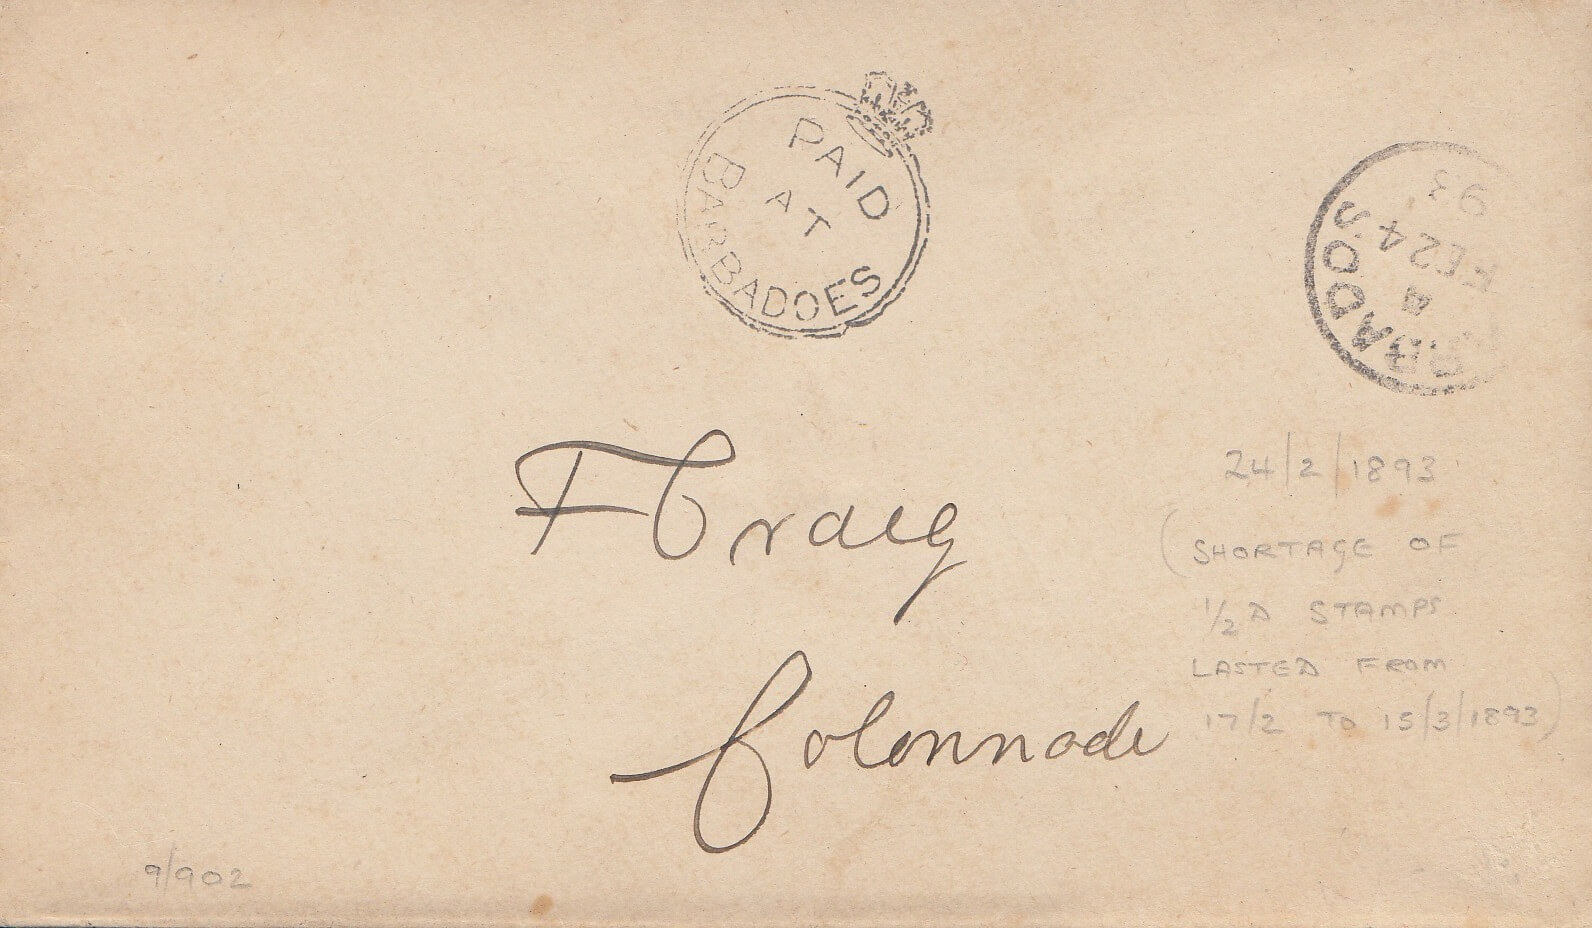 PAID
AT
BARBADOES
RBADOS
A
FE 24
93
F Craig
Colonnade
24/2/1893
(SHORTAGE OF
1/2 D STAMPS
LASTED FROM
17/2 TO 15/3/1893)
9/902